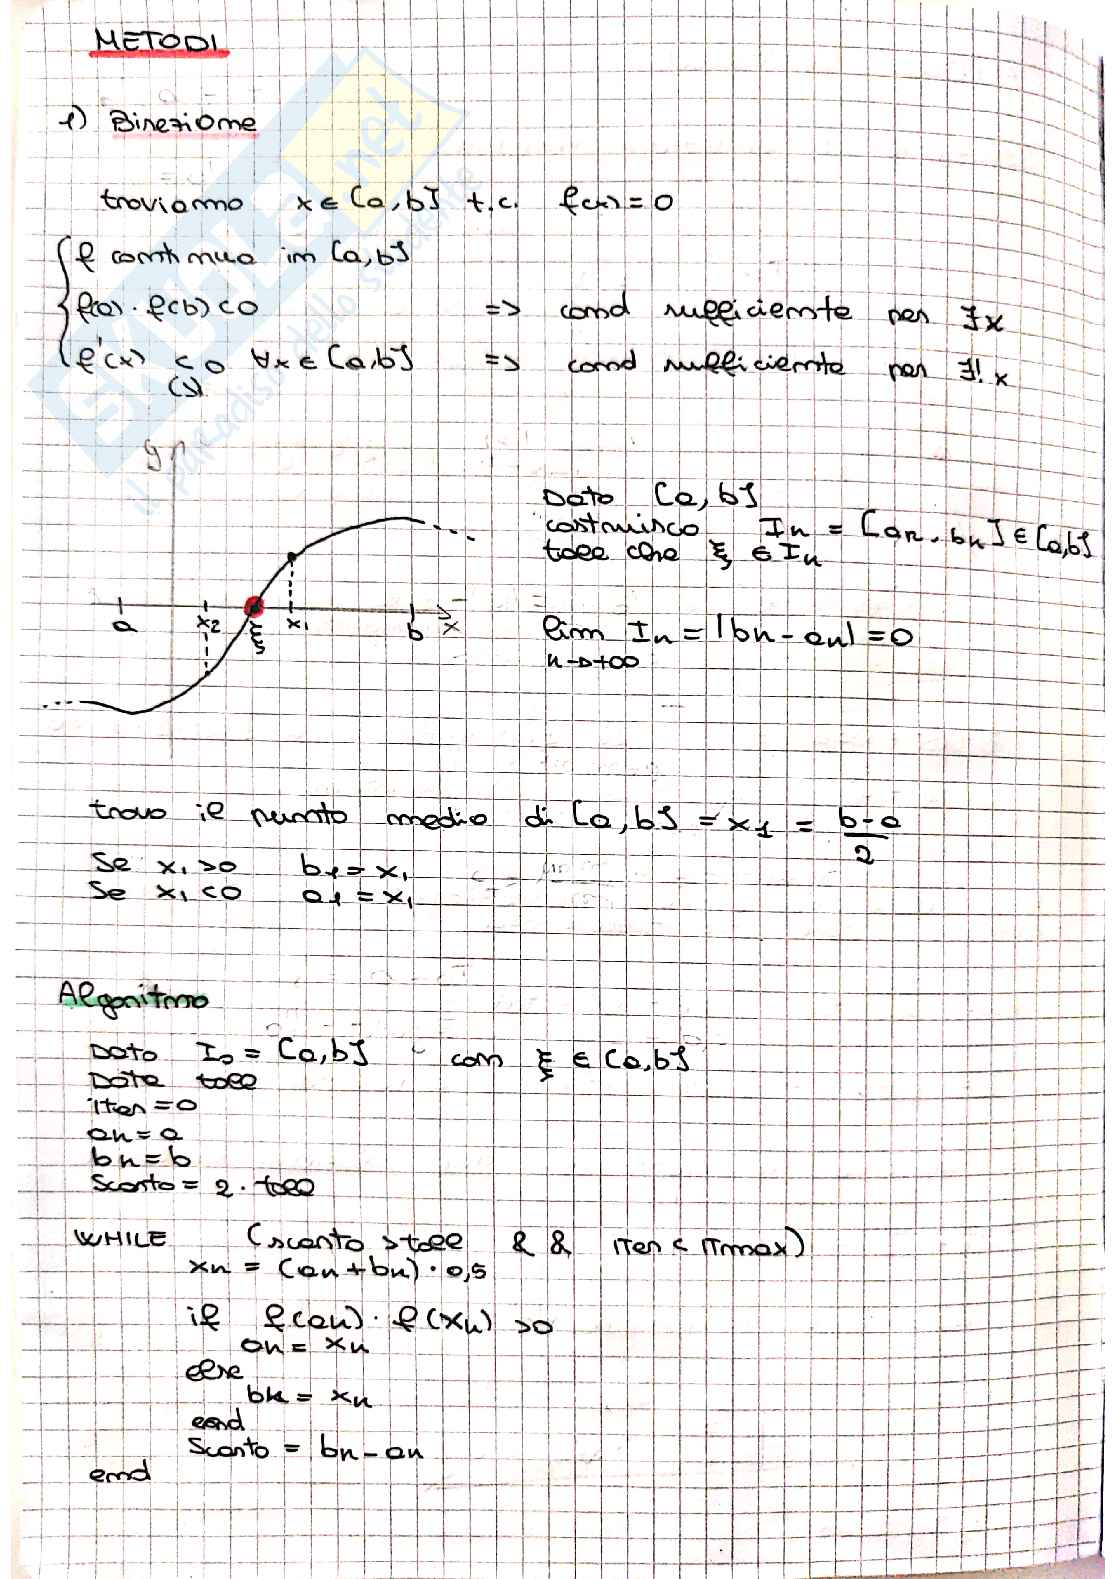 METODI
1) Bisezione
troviamo x ∈ [a,b] t.c. f(x) = 0
f continua in [a,b]
f(a) · f(b) < 0 => cond sufficiente per ∃x
f'(x) < 0 ∀x ∈ [a,b] => cond sufficiente per ∃! x
(>)
y
a x2 ξ x1 b x
Dato [a,b]
costruisco In = [an, bn] ∈ [a,b]
tale che ξ ∈ In
lim In = |bn - an| = 0
n→+∞
trovo il punto medio di [a,b] = x1 = b-a
2
Se x1 >0 b1 = x1
Se x1 <0 a1 = x1
Algoritmo
Dato I0 = [a,b] con ξ ∈ [a,b]
Data toll
iter = 0
an = a
bn = b
Scarto = 2 · toll
WHILE (scarto > toll && iter < itmax)
xn = (an + bn) · 0,5
if f(an) · f(xn) >0
an = xn
else
bn = xn
end
Scarto = bn - an
end
SKUOLA.net
il paradiso dello studente